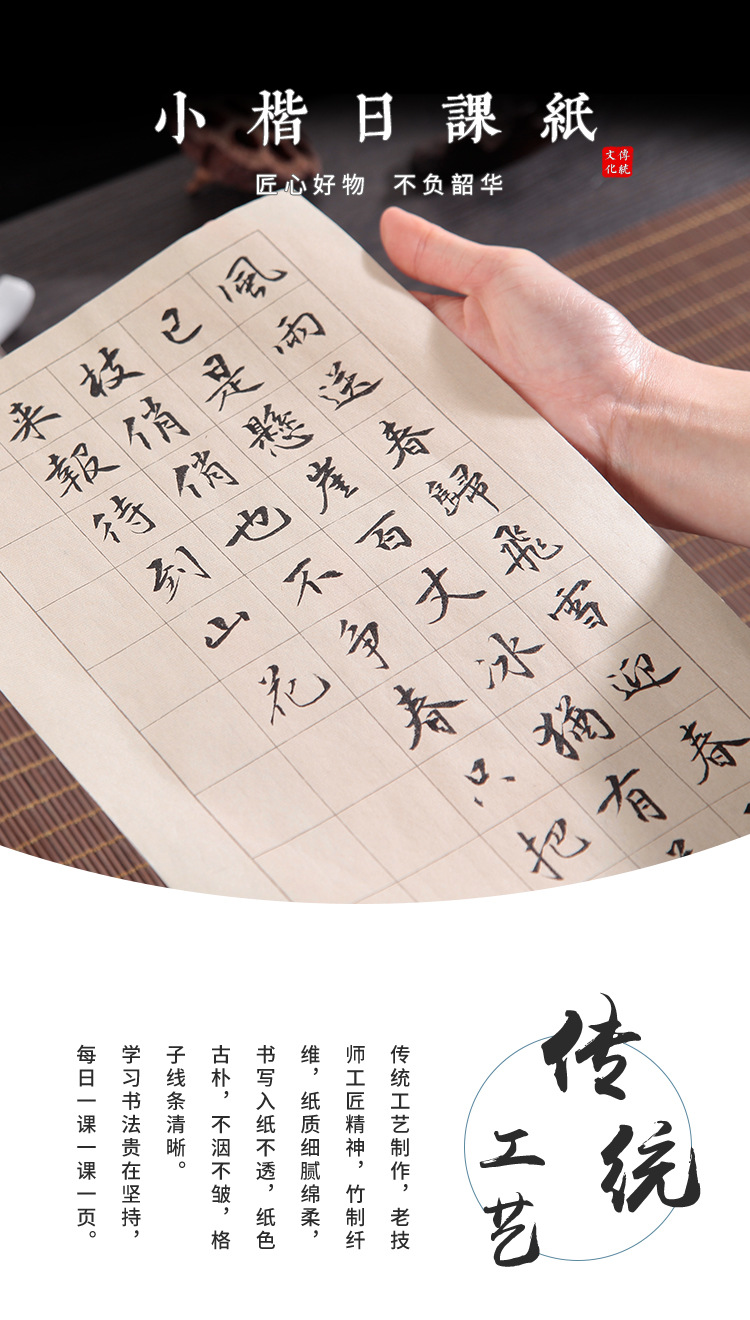 小楷日課紙
匠心好物 不负韶华
傳統
文化
風雨送春歸飛雪迎春
已是懸崖百丈冰猶有
枝俏俏也不争春只把
来報待到山花
传统
工艺
传统工艺制作，老技
师工匠精神，竹制纤
维，纸质细腻绵柔，
书写入纸不透，纸色
古朴，不洇不皱，格
子线条清晰。
学习书法贵在坚持，
每日一课一课一页。